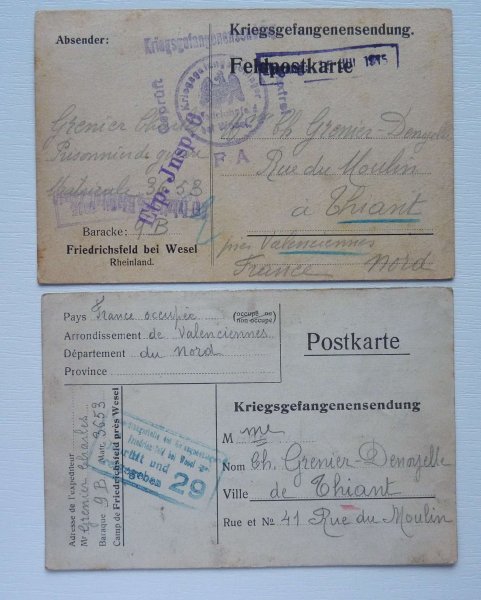 Absender:
Kriegsgefangenensendung.
Kriegsgefangenensendung
Feldpostkarte
1915
Geprüft
Grenier Charles
Mme Ch Grenier-Denoyelle
Prisonnier de guerre
Rue du Moulin
F A
Matricule 3653
à Thiant
Exp. Insp. 6.
Baracke: 9B
près Valenciennes
Friedrichsfeld bei Wesel
Rheinland.
France Nord
Pays France occupée (occupé ou
non occupé)
Arrondissement de Valenciennes
Département du Nord
Province
Postkarte
Kriegsgefangenensendung
Mme
Nom Ch. Grenier-Denoyelle
Ville de Thiant
Rue et No 41 Rue du Moulin
Adresse de l'expéditeur:
Mr Grenier Charles
Baraque 9B Matr. 3653
Camp de Friedrichsfeld près Wesel
Friedrichsfeld bei Wesel
geprüft und
29